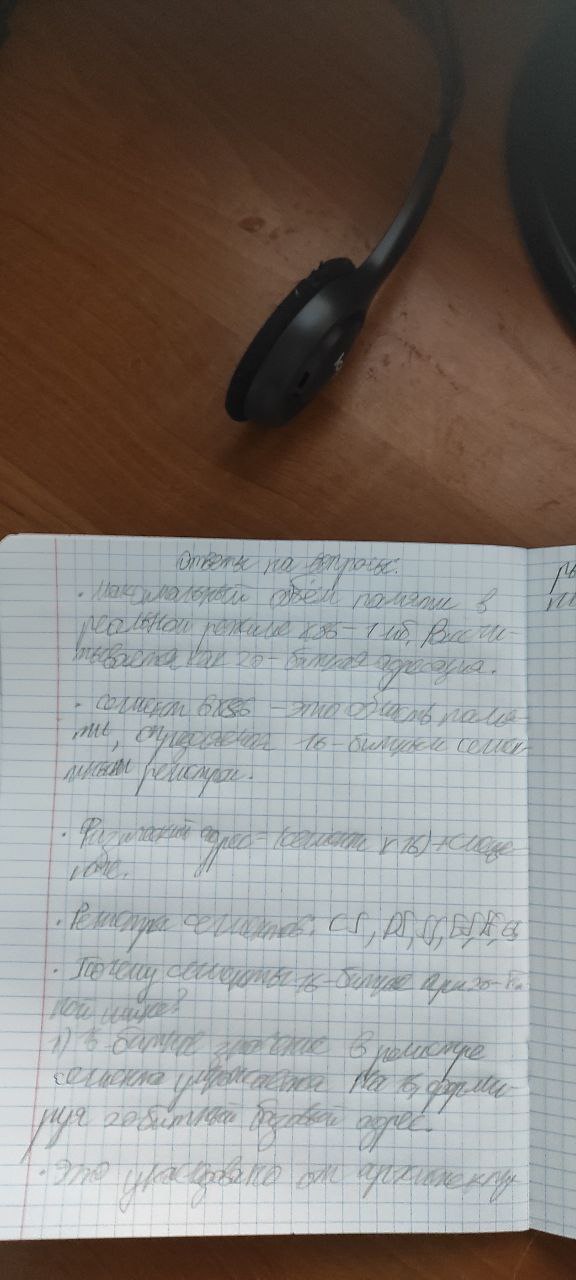 Ответы на вопросы.
· Максимальный объём памяти в
реальной режиме x86 - 1 мб, Рассчи-
тывается как 20-битная адресация.
· сегмент в x86 - это область памя-
ти, определяемая 16-битным сегмен-
тным регистром.
· Физический адрес = (сегмент x 16) + смеще
ние.
· Регистры сегментов: CS, DS, SS, ES,
· Почему сегменты 16-битные при 20-
ной шине?
1) 16-битное значение в регистре
сегмента умножается на 16, форми
руя 20битный базовый адрес.
· Это унаследовано от архитекту
ры